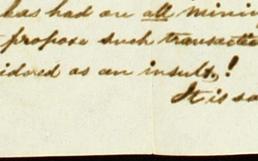 has had on all mini
propose such transactio
idered as an insult,!
It is so